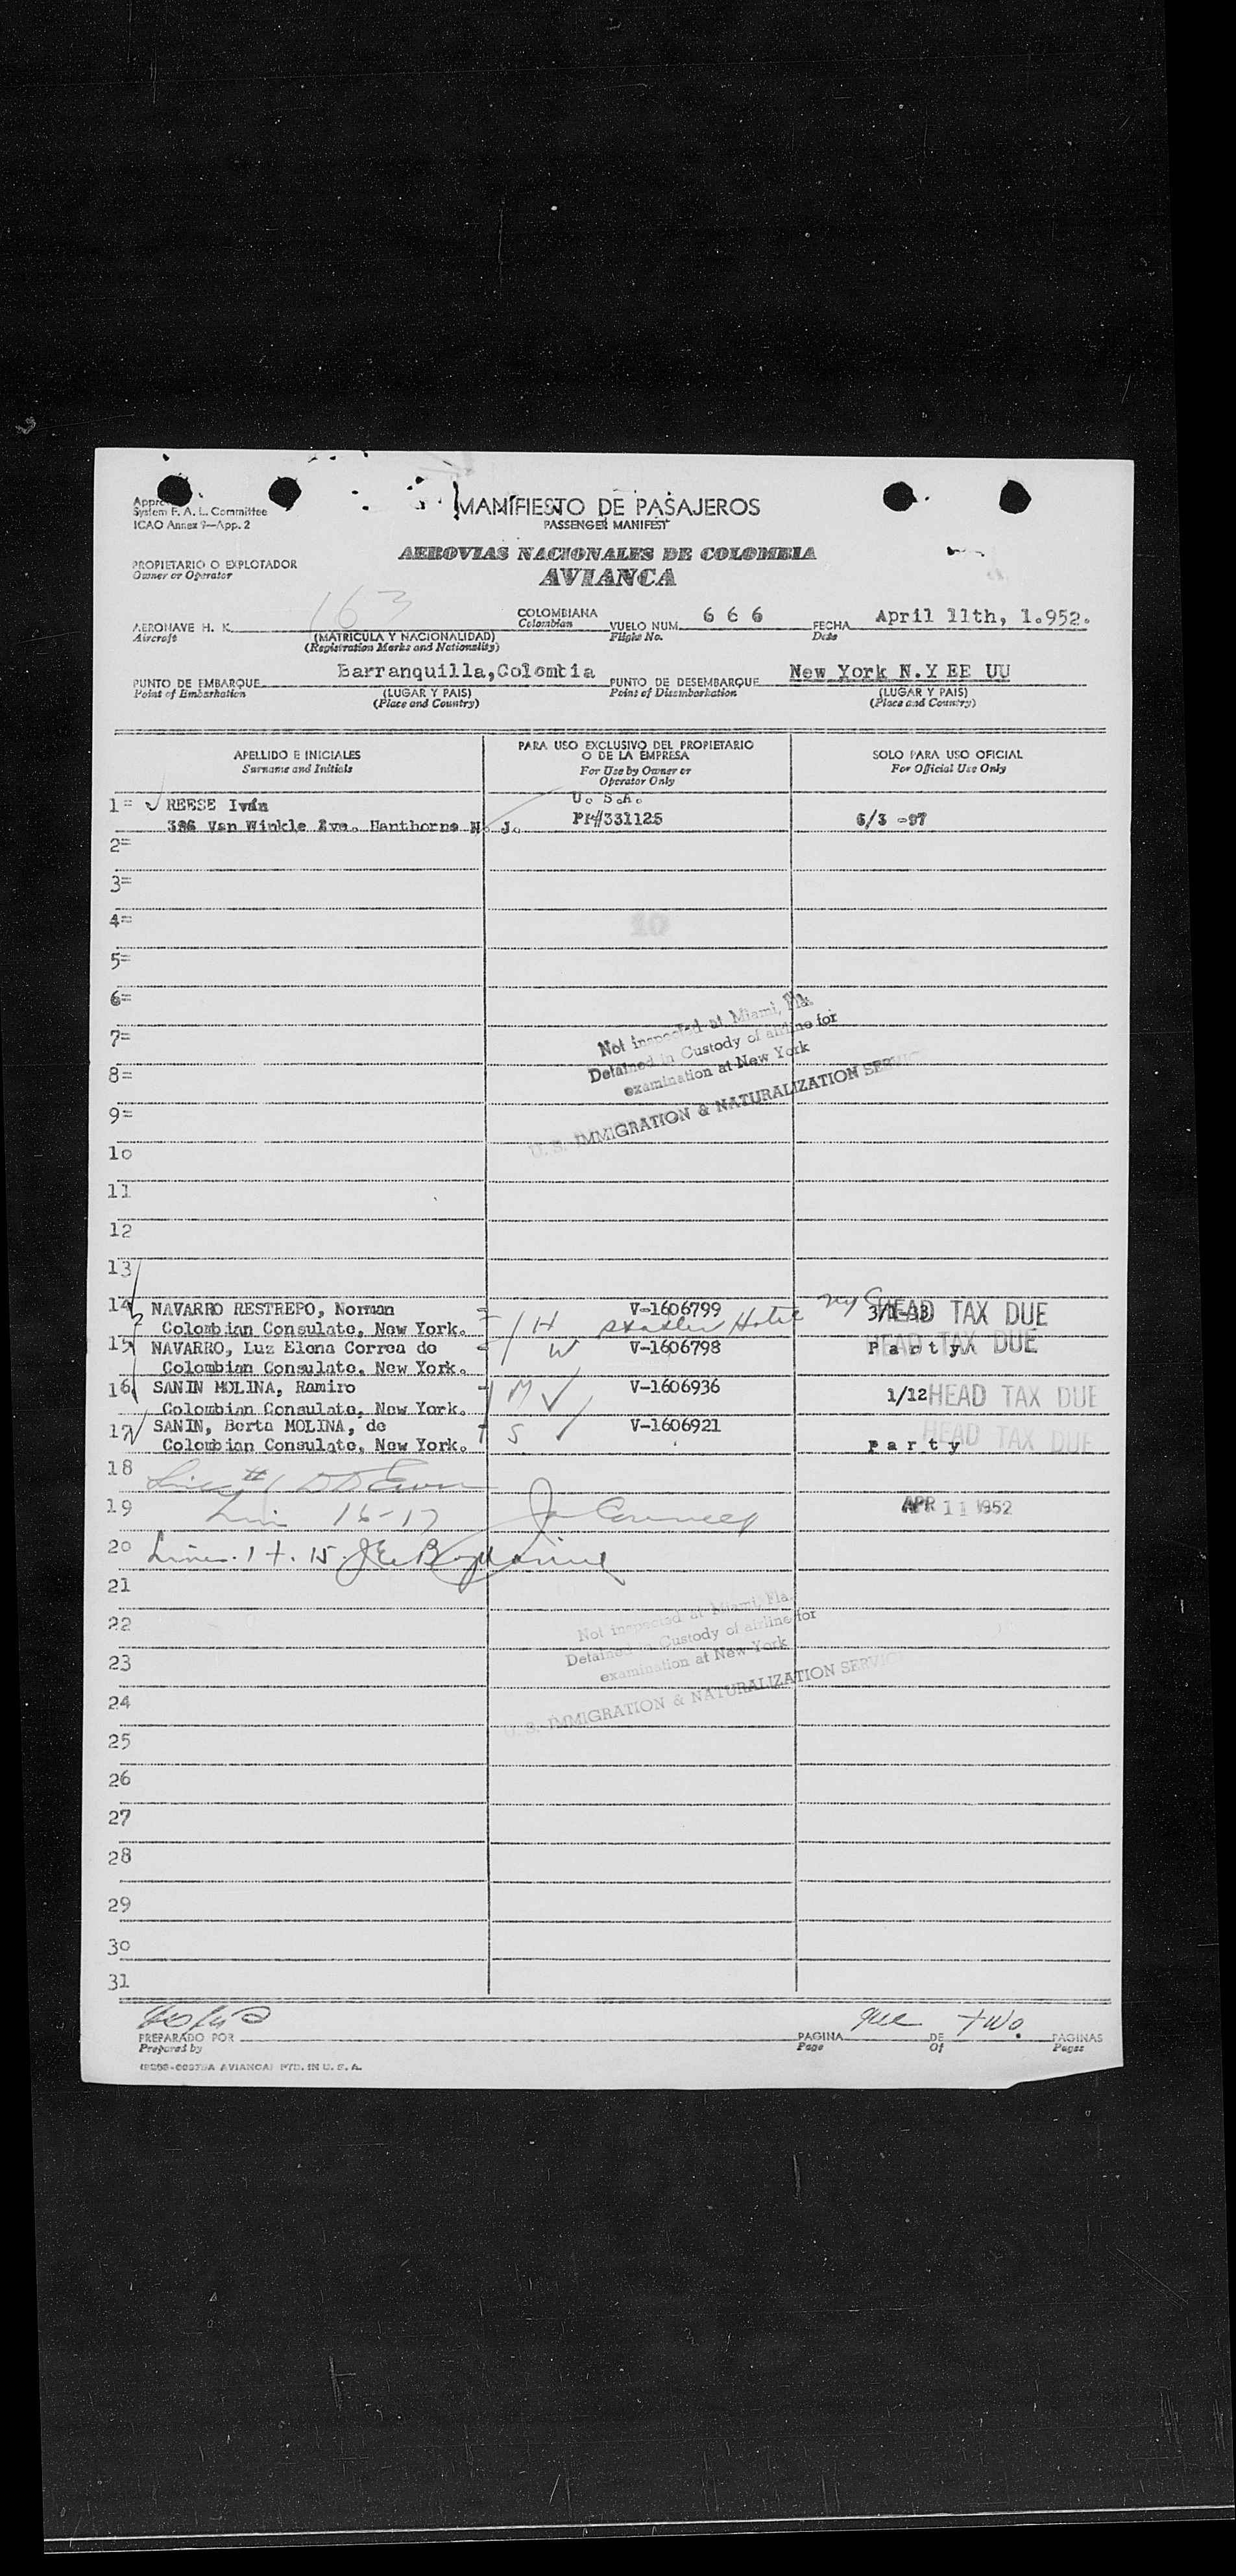 System F. A. L. Committee
ICAO Annex 9—App. 2
MANIFIESTO DE PASAJEROS
PASSENGER MANIFEST
AEROVIAS NACIONALES DE COLOMBIA
AVIANCA
PROPIETARIO O EXPLOTADOR
Owner or Operator
AERONAVE H. K. 163
Aircraft
(MATRICULA Y NACIONALIDAD)
(Registration Marks and Nationality)
COLOMBIANA
Colombian
VUELO NUM. 6 6 6
Flight No.
FECHA April 11th, 1.952.
Date
PUNTO DE EMBARQUE Barranquilla,Colombia
Point of Embarkation
(LUGAR Y PAIS)
(Place and Country)
PUNTO DE DESEMBARQUE New York N.Y EE UU
Point of Disembarkation
(LUGAR Y PAIS)
(Place and Country)
APELLIDO E INICIALES
Surname and Initials
PARA USO EXCLUSIVO DEL PROPIETARIO
O DE LA EMPRESA
For Use by Owner or
Operator Only
SOLO PARA USO OFICIAL
For Official Use Only
1= REESE Iván U. S.A.
386 Van Winkle Ave. Hanthorne N. J. PP#331125 6/3 -97
2=
3=
4=
10
5=
6=
7=
8=
9=
Not inspected at Miami, Fla.
Detained in Custody of airline for
examination at New York
U. S. IMMIGRATION & NATURALIZATION SERVIC
10
11
12
13
14 NAVARRO RESTREPO, Norman V-1606799 3/1-33 HEAD TAX DUE
Colombian Consulate, New York. H Statler Hotel NYC
15 NAVARRO, Luz Elena Correa de W V-1606798 Party HEAD TAX DUE
Colombian Consulate, New York.
16 SANIN MOLINA, Ramiro M V-1606936 1/12 HEAD TAX DUE
Colombian Consulate, New York.
17 SANIN, Berta MOLINA, de S V-1606921 HEAD TAX DUE
Colombian Consulate, New York. party
18
19 16-17 APR 11 1952
20
21
22
23
24
Not inspected at Miami, Fla.
Detained in Custody of airline for
examination at New York
U. S. IMMIGRATION & NATURALIZATION SERVIC
25
26
27
28
29
30
31
PREPARADO POR
Prepared by
PAGINA
Page
DE two.
Of
PAGINAS
Pages
AVIANCA) PTD. IN U. S. A.